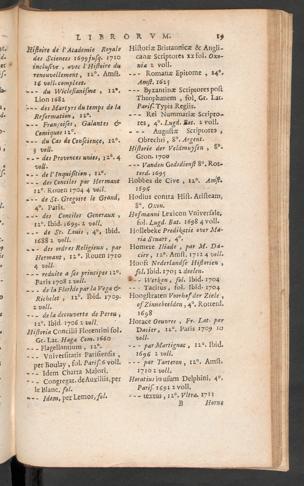 LIBRORVM. 19
Histoire de l'Academie Royale
des Sciences 1699 jusq. 1710
inclusive, avec l'Histoire du
renouvellement, 12°. Amst.
16 voll. compleet.
--- du Wiclefianisme, 12°.
Lion 1682
--- des Martyrs du temps de la
Reformation, 12°.
--- Françoises, Galantes &
Comiques 12°.
--- du Cas de Conscience, 12°.
3 voll.
--- des Provences unies, 12°. 4
voll.
--- de l'Inquisition, 12°.
--- des Conciles par Hermant
12°. Rouen 1704 4 voll.
--- de St. Gregoire le Grand,
4°. Paris.
--- des Conciles Generaux,
12°. Ibid. 1699. 2 voll.
--- de St. Louis, 4°. Ibid.
1688 2 voll.
--- des ordres Religieux, par
Hermant, 12°. Rouen 1710
4 voll.
--- reduite a ses principes 12°.
Paris 1708 2 voll.
--- de la Florida par la Vega &
Richelet, 12°. Ibid. 1709.
2 voll.
--- de la decouverte de Perou,
12°. Ibid. 1706 2 voll.
Historia Concilii Florentini fol.
Gr. Lat. Haga Com. 1660
--- Flagellantium, 12°.
--- Universitatis Parisiensis,
per Boulay, fol. Paris. 6 voll.
--- Idem Charta Majori.
--- Congregat. de Auxiliis, per
le Blanc, fol.
--- Idem, per Lemor, fol.
Historiæ Britannicæ & Angli-
canæ Scriptores xx fol. Oxo-
nia 2 voll.
--- Romanæ Epitome, 24°.
Amst. 1625
--- Byzantinæ Scriptores post
Theophanem, fol. Gr. Lat.
Paris. Typis Regiis.
--- Rei Nummariæ Scripto-
res, 4°. Lugd. Bat. 2 voll.
--- Augustæ Scriptores,
Obrechti, 8°. Argent.
Historie der Veldmuysen, 8°.
Gron. 1700
--- Vanden Godsdienst 8°. Rot-
terd. 1695
Hobbes de Cive, 12°. Amst.
1696
Hodius contra Hist. Aristeam,
8°. Oxon.
Hofmanni Lexicon Universale,
fol. Lugd. Bat. 1698 4 voll.
Hollebeke Predikatie over Ma-
ria Stuart, 4°.
Homere Iliade, par M. Da-
cier, 12°. Amst. 1712 4 voll.
Hooft Nederlandse Historien,
fol. Ibid. 1703 2 deelen.
--- Werken, fol. Ibid. 1704
--- Tacitus, fol. Ibid. 1704
Hoogstraten Voorhof der Ziele,
of Zinnebeelden, 4°. Rotterd.
1698
Horace Oeuvres, Fr. Lat. par
Dacier, 12°. Paris 1709 10
voll.
--- par Martignac, 12°. Ibid.
1696 2 voll.
--- par Tarteron, 12°. Amst.
1710 2 voll.
Horatius in usum Delphini, 4°.
Paris. 1691 2 voll.
--- textus, 12°. Ultra. 1713
B Horne